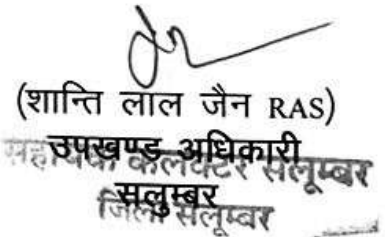 (शान्ति लाल जैन RAS)
उपखण्ड अधिकारी
सहायक कलक्टर सलूम्बर
सलुम्बर
जिला सलूम्बर